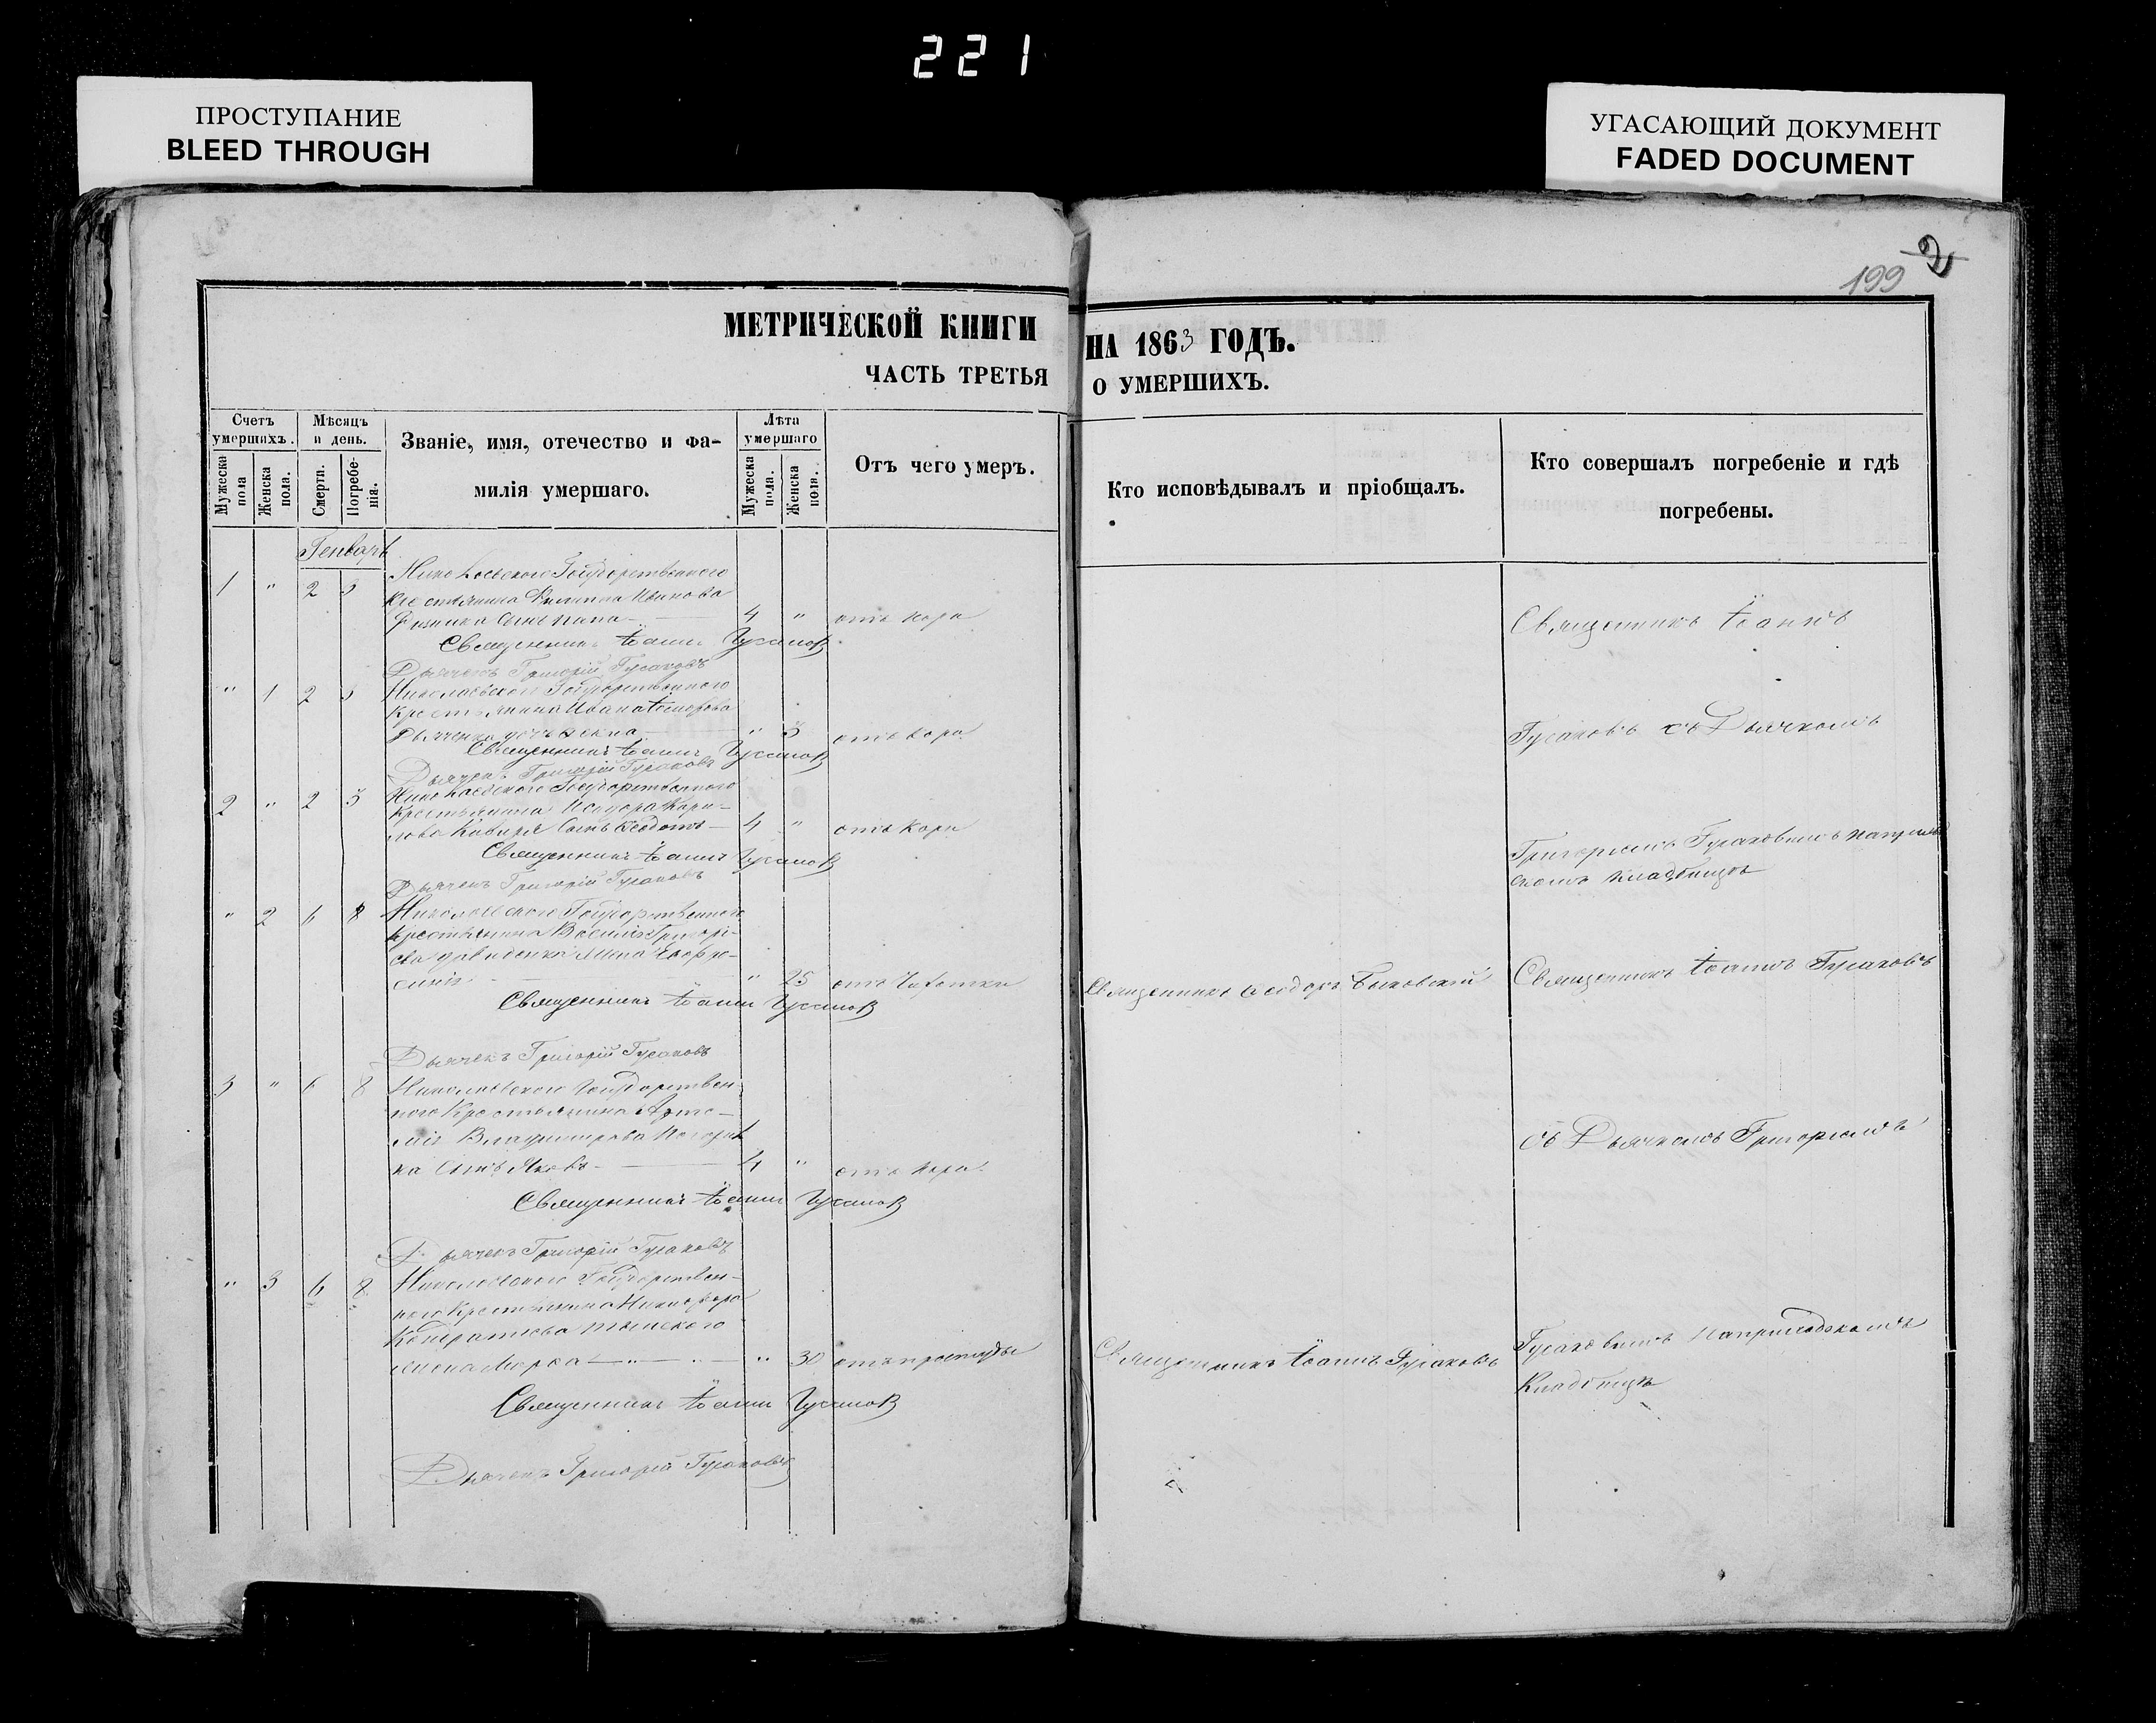 221
ПРОСТУПАНИЕ
BLEED THROUGH
УГАСАЮЩИЙ ДОКУМЕНТ
FADED DOCUMENT
2
199
МЕТРИЧЕСКОЙ КНИГИ НА 1863 ГОДЪ.
ЧАСТЬ ТРЕТЬЯ О УМЕРШИХЪ.
Счетъ умершихъ.
Мужеска пола
Женска пола.
Мѣсяцъ и день.
Смерти.
Погребенія.
Званіе, имя, отечество и фа-
милія умершаго.
Лѣта умершаго
Мужеска пола.
Женска пола.
Отъ чего умеръ.
Кто исповѣдывалъ и пріобщалъ.
Кто совершалъ погребеніе и гдѣ
погребены.
Генварь
1 " 2 3 Николаевского Государственного
Крестьянина Филиппа Иванова
сынъ 4 " отъ кори
Священникъ Іоаннъ
Священникъ Іоаннъ Гусаковъ
Дьячекъ Григорій Гусаковъ
" 1 2 3 Николаевского Государственного
Крестьянина Ивана
Дьяченка дочь " 3 отъ кори
Гусаковъ съ Дьячкомъ
Священникъ Іоаннъ Гусаковъ
Дьячекъ Григорій Гусаковъ
2 " 2 3 Николаевского Государственного
Крестьянина
сынъ Ѳеодотъ 4 " отъ кори
Григоріемъ Гусаковымъ на приход
скомъ кладбищѣ
Священникъ Іоаннъ Гусаковъ
Дьячекъ Григорій Гусаковъ
" 2 6 8 Николаевского Государственного
Крестьянина Василія Григорі-
ева жена Евфро-
синія " 25 отъ чахотки
Священникъ Ѳеодоръ Быковскій
Священникъ Іоаннъ Гусаковъ
Священникъ Іоаннъ Гусаковъ
Дьячекъ Григорій Гусаковъ
3 " 6 8 Николаевского Государствен-
ного Крестьянина Арте-
мія Владимирова
ка сынъ Яковъ 4 " отъ кори
съ Дьячкомъ Григоріемъ
Священникъ Іоаннъ Гусаковъ
Дьячекъ Григорій Гусаковъ
" 3 6 8 Николаевского Государствен-
ного Крестьянина Никифора
Кондратова
жена " 30 отъ простуды
Священникъ Іоаннъ Гусаковъ
Гусаковымъ на приходскомъ
Кладбищѣ
Священникъ Іоаннъ Гусаковъ
Дьячекъ Григорій Гусаковъ